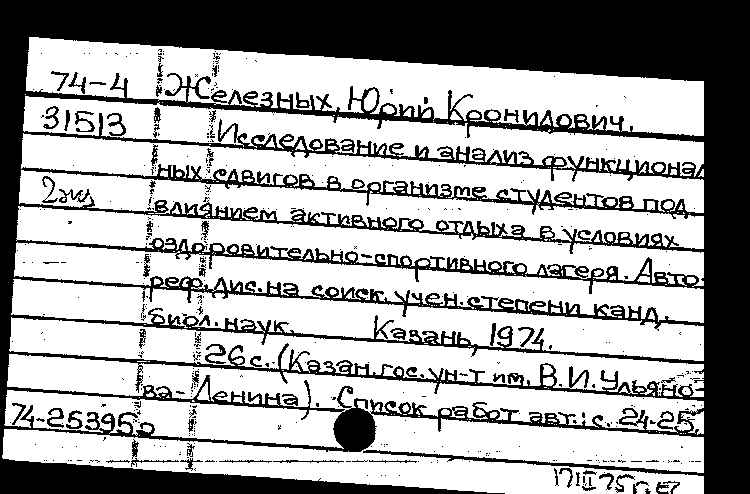 74-4 Железных, Юрий Кронидович.
31513 Исследование и анализ функционал
ных сдвигов в организме студентов под
2экз влиянием активного отдыха в условиях
оздоровительно-спортивного лагеря. Авто-
реф. дис. на соиск. учен. степени канд.
биол. наук. Казань, 1974.
26 с. (Казан. гос. ун-т им. В.И. Ульяно-
ва-Ленина). Список работ авт.: с. 24-25.
74-25395